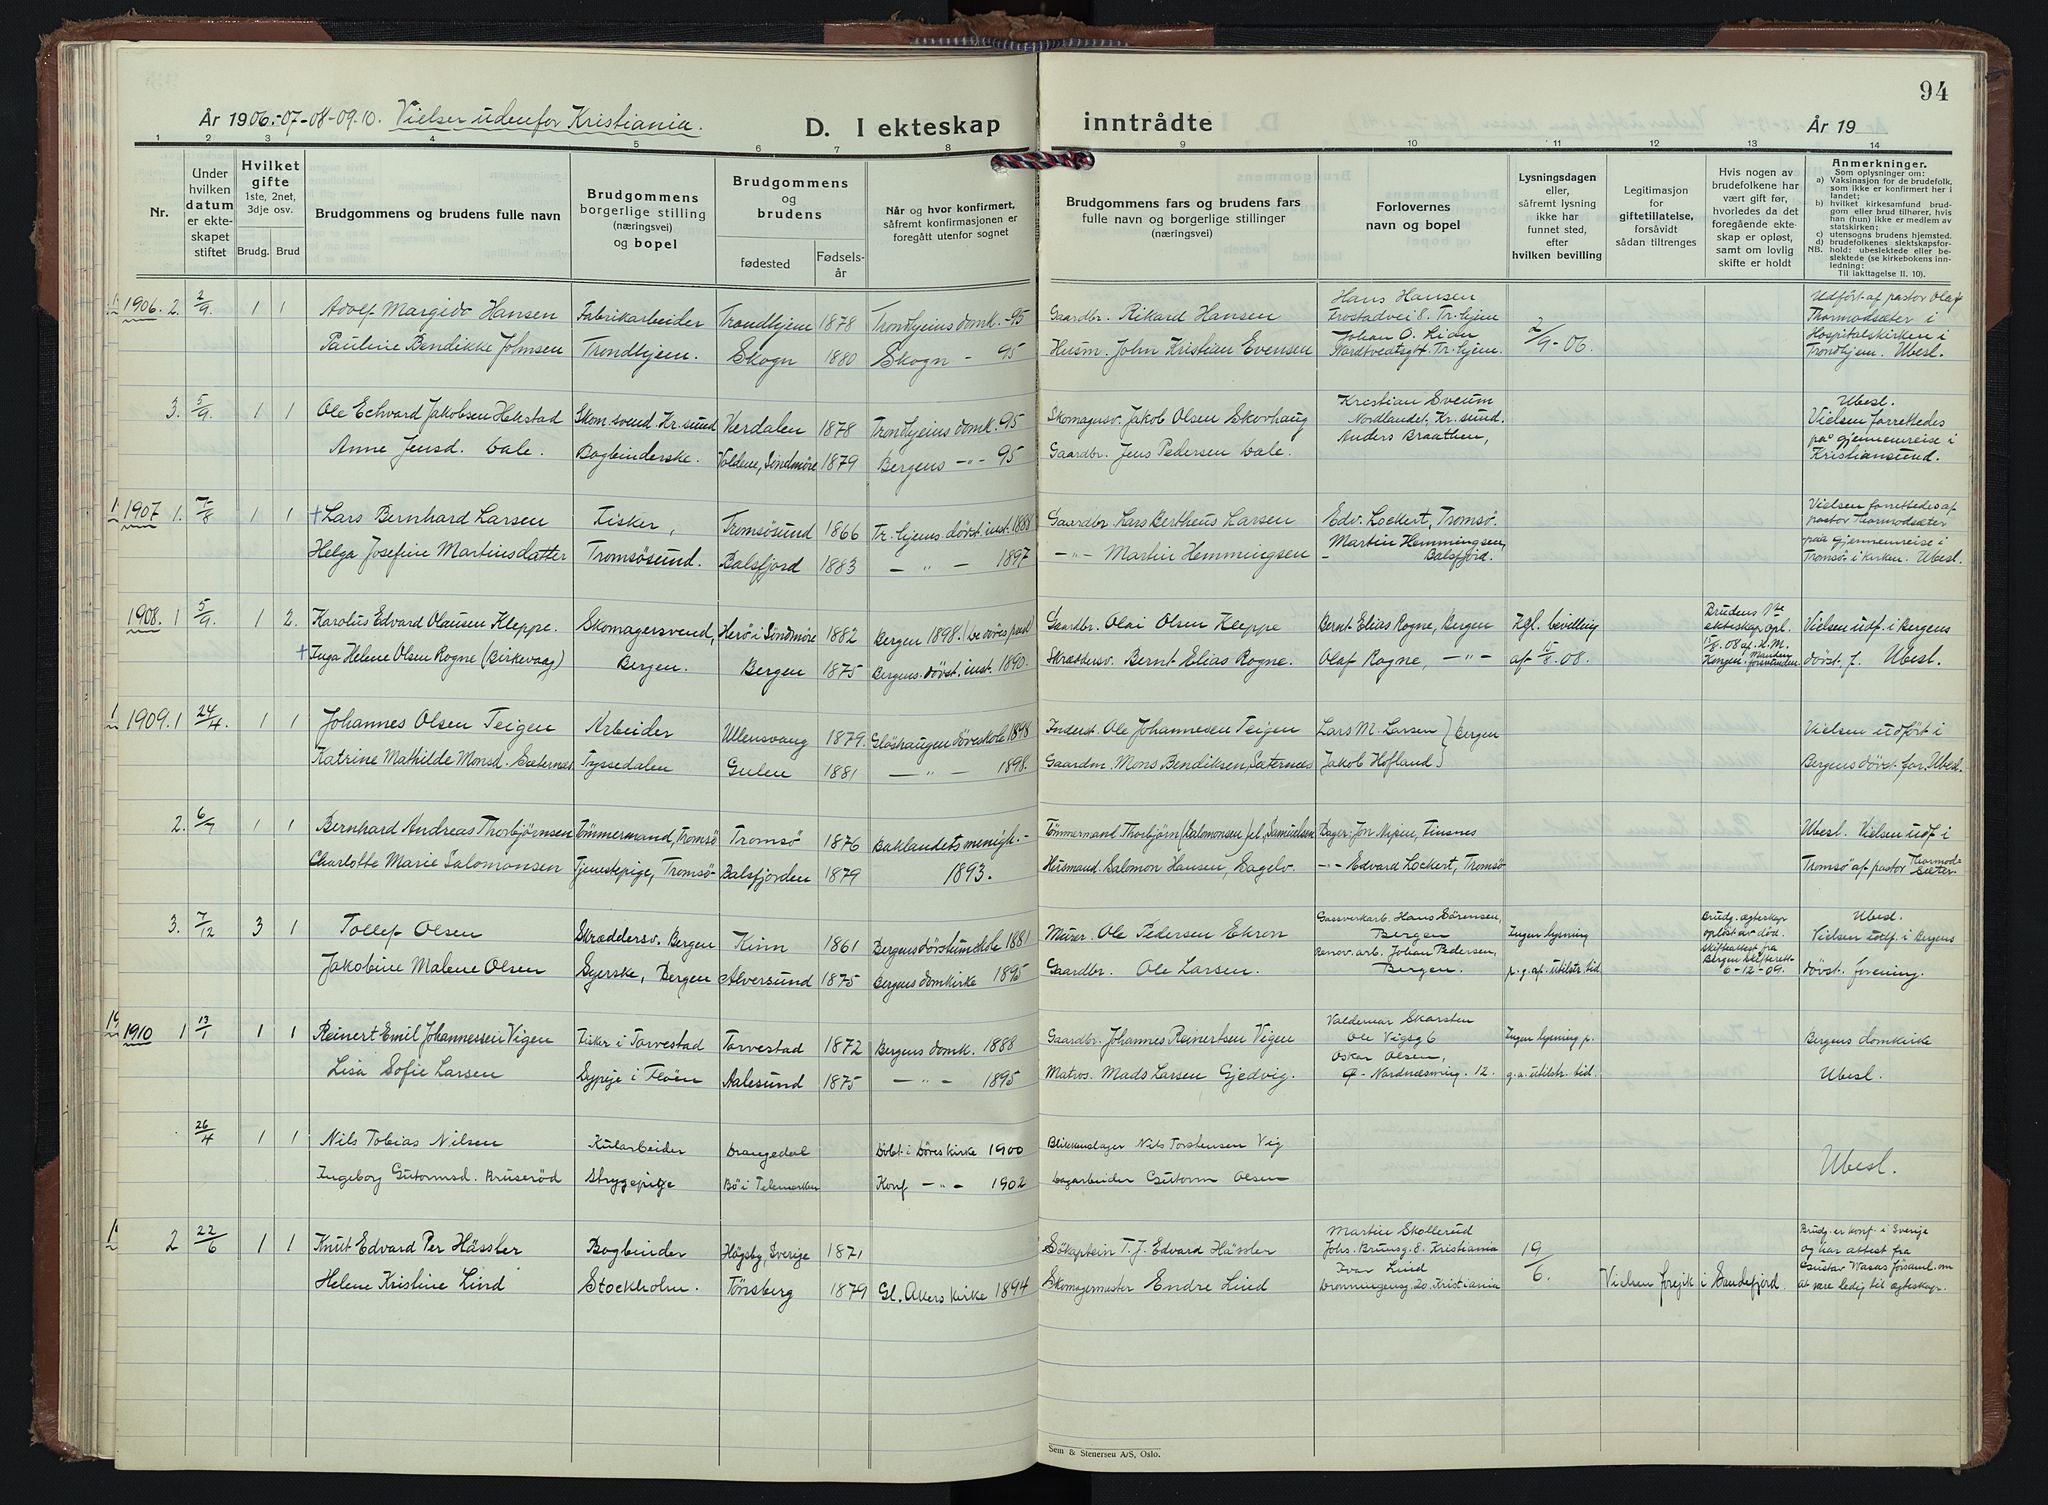 94
År 1906.-07-08-09.10. Vielser udenfor Kristiania.
D. I ekteskap inntrådte
År 19
1 2 3 4 5 6 7 8 9 10 11 12 13 14
Nr.
Under hvilken datum er ekteskapet stiftet
Hvilket gifte 1ste, 2net, 3dje osv.
Brudg. Brud
Brudgommens og brudens fulle navn
Brudgommens borgerlige stilling (næringsvei) og bopel
Brudgommens og brudens
fødested
Fødselsår
Når og hvor konfirmert, såfremt konfirmasjonen er foregått utenfor sognet
Brudgommens fars og brudens fars fulle navn og borgerlige stillinger (næringsvei)
Forlovernes navn og bopel
Lysningsdagen eller, såfremt lysning ikke har funnet sted, efter hvilken bevilling
Legitimasjon for giftetillatelse, forsåvidt sådan tiltrenges
Hvis nogen av brudefolkene har vært gift før, hvorledes da det foregående ekteskap er opløst, samt om lovlig skifte er holdt
Anmerkninger.
Som oplysninger om:
a) Vaksinasjon for de brudefolk, som ikke er konfirmert her i landet;
b) hvilket kirkesamfund brudgom eller brud tilhører, hvis han (hun) ikke er medlem av statskirken;
c) utensogns brudens hjemsted.
NB. d) brudefolkenes slektskapsforhold: ubeslektede eller beslektede (se kirkebokens innledning: Til iakttagelse II. 10).
1906. 2. 2/9 1 1 Adolf Margido Hansen Fabrikarbeider Trondhjem 1878 Trondhjems domk. -95 Gaardbr. Rikard Hansen Hans Hansen Frostadvei 8. Tr.hjem 2/9-06. Udført af pastor Olaf Thormodsæter i
Pauline Bendikke Johnsen Trondhjem. Skogn 1880 Skogn - 95 Husm. John Kristian Evensen Johan O. Lian Nordtvedtsg 4. Tr.hjem. Hospitalskirken i Trondhjem. Ubesl.
3. 5/9 1 1 Ole Edvard Jakobsen Hekstad Skom.svend. Kr.sund Verdalen 1878 Trondhjems domk. 95 Skomagersv. Jakob Olsen Skovhaug Kristian Sveum Nordlandet, Kr.sund. Ubesl. Vielsen forrettedes
Anne Jensd. Dale. Bogbinderske. Voldene, Søndmøre 1879 Bergens -"- 95 Gaardbr. Jens Pedersen Dale. Anders Braathen, paa gjennemreise i Kristiansund.
1907 1. 7/8 1 1 + Lars Bernhard Larsen Fisker, Tromsøsund 1866 Tr.hjems døvst.inst. 1888 Gaardbr Lars Bertheus Larsen Edv. Lockert, Tromsø. Vielsen forrettedes af pastor Thormodsæter
Helga Josefine Martinsdatter Tromsøsund. Balsfjord 1883 - " - 1897 -"- Martin Hemmingsen Martin Hemmingsen, Balsfjord. paa gjennemreise i Tromsø i kirken. Ubesl.
1908. 1 5/9 1 2. Karolus Edvard Olausen Kleppe. Skomagersvend, Herø i Søndmøre 1882 Bergen 1898. (de døves præst) Gaardbr. Olai Olsen Kleppe Bernt Elias Rogne, Bergen Kgl. bevilling Brudens 1ste ekteskap opl. Vielsen udf. i Bergens
+ Inga Helene Olsen Rogne (Birkevaag) Bergen. Bergen 1875 Bergens døvst. inst. 1890. Skræddersv. Bernt Elias Rogne. Olaf Rogne, -"- af 15/8. 08. 15/8. 08 af H. M. Kongen. Manden døvst. f. Ubesl.
1909. 1 24/4. 1 1 Johannes Olsen Teigen Arbeider Ullensvang 1879. Gløshaugen døveskole 1898 Inderst. Ole Johannesen Teigen Lars M. Larsen } Bergen Vielsen udført i
Katrine Mathilde Monsd. Sæternes Tyssedalen Gulen 1881 - " - 1898. Gaardm. Mons Bendiksen, Sæternes Jakob Hofland } Bergens døvst. for. Ubesl.
2. 6/7 1 1 Bernhard Andreas Thorbjørnsen Tømmermand, Tromsø Tromsø 1876 Baklandets menigh.- Tømmermand Thorbjørn (Salomonsen) el. Samuelsen Bager: Jon Nipen, Finsnes Ubesl. Vielsen udf. i
Charlotte Marie Salomonsen Tjenestepige, Tromsø Balsfjorden 1879 1893. Husmand. Salomon Hansen, Sagelv. -"- Edvard Lockert, Tromsø Tromsø af pastor Thormodsæter
3. 7/12 3 1 Tollef Olsen Skræddersv. Bergen Kinn 1861 Bergens døvstumskole 1881 Murer. Ole Pedersen Ekron Gassverkarb. Hans Sørensen, Bergen Ingen lysning Brudg. ægteskap opløst av død. Ubesl. Vielsen udf. i Bergens
Jakobine Malene Olsen Syerske, Bergen Alversund 1875 Bergens domkirke 1895 Gaardbr. Ole Larsen. Renov. arb. Johan Pedersen, Bergen. p. g. af. utilstr. tid skifteattest fra Bergen skifterett 6-12-09. døvst. forening.
1910 1 13/1 1 1 Reinert Emil Johannessen Vigen Fisker i Torvestad Torvestad 1872 Bergens domk. 1888 Gaardbr. Johannes Reinertsen Vigen Valdemar Skarsten Ole Vigsg 6 Ingen lysning p. Bergens domkirke
Lisa Sofie Larsen Sypige i Fløen Aalesund 1875 -"- 1895 Matros. Mads Larsen Gjedvig. Oskar Olsen, Nordnæsvng. 12. g. a. utilstr. tid. Ubesl.
26/4 1 1 Nils Tobias Nilsen Kularbeider Drangedal Døbt i Døves kirke 1900 Blikkenslager Nils Torstensen Vig
Ingeborg Gutormsd. Bruserød Strygepige Bø i Telemarken Konf -"- 1902 Dagarbeider Gutorm Olsen Ubesl.
2 22/6 1 1 Knut Edvard Per Hässler Bogbinder Högsby, Sverige 1871 Søkaptein T. J. Edvard Hässler Martin Skollerud Johs. Brunsg. 8. Kristiania 19/6. Brudg. er konf. i Sverige og har attest fra
Helene Kristine Lind Stockholm. Tönsberg 1879 Gl. Akers kirke 1894 Skomagermester Endre Lind Ivar Lind Dronningensg 20. Kristiania Vielsen foregik i Sandefjord. Gustav Wasas församl. om at være ledig til ægteskap.
Sem & Stenersen A/S, Oslo.